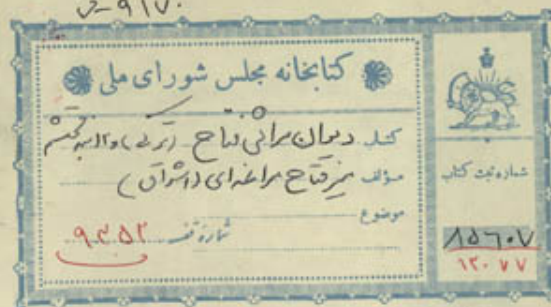 ف ـ ۹۱۷۰
کتابخانه مجلس شورای ملی
کتاب دیوان مراثی فتاح (ترکی)
مؤلف میرفتاح مراغه‌ای (اشراق)
موضوع
شماره قفسه ۹۴۵۲
شماره ثبت کتاب
۸۵۶۰۷
۱۲۰۷۷